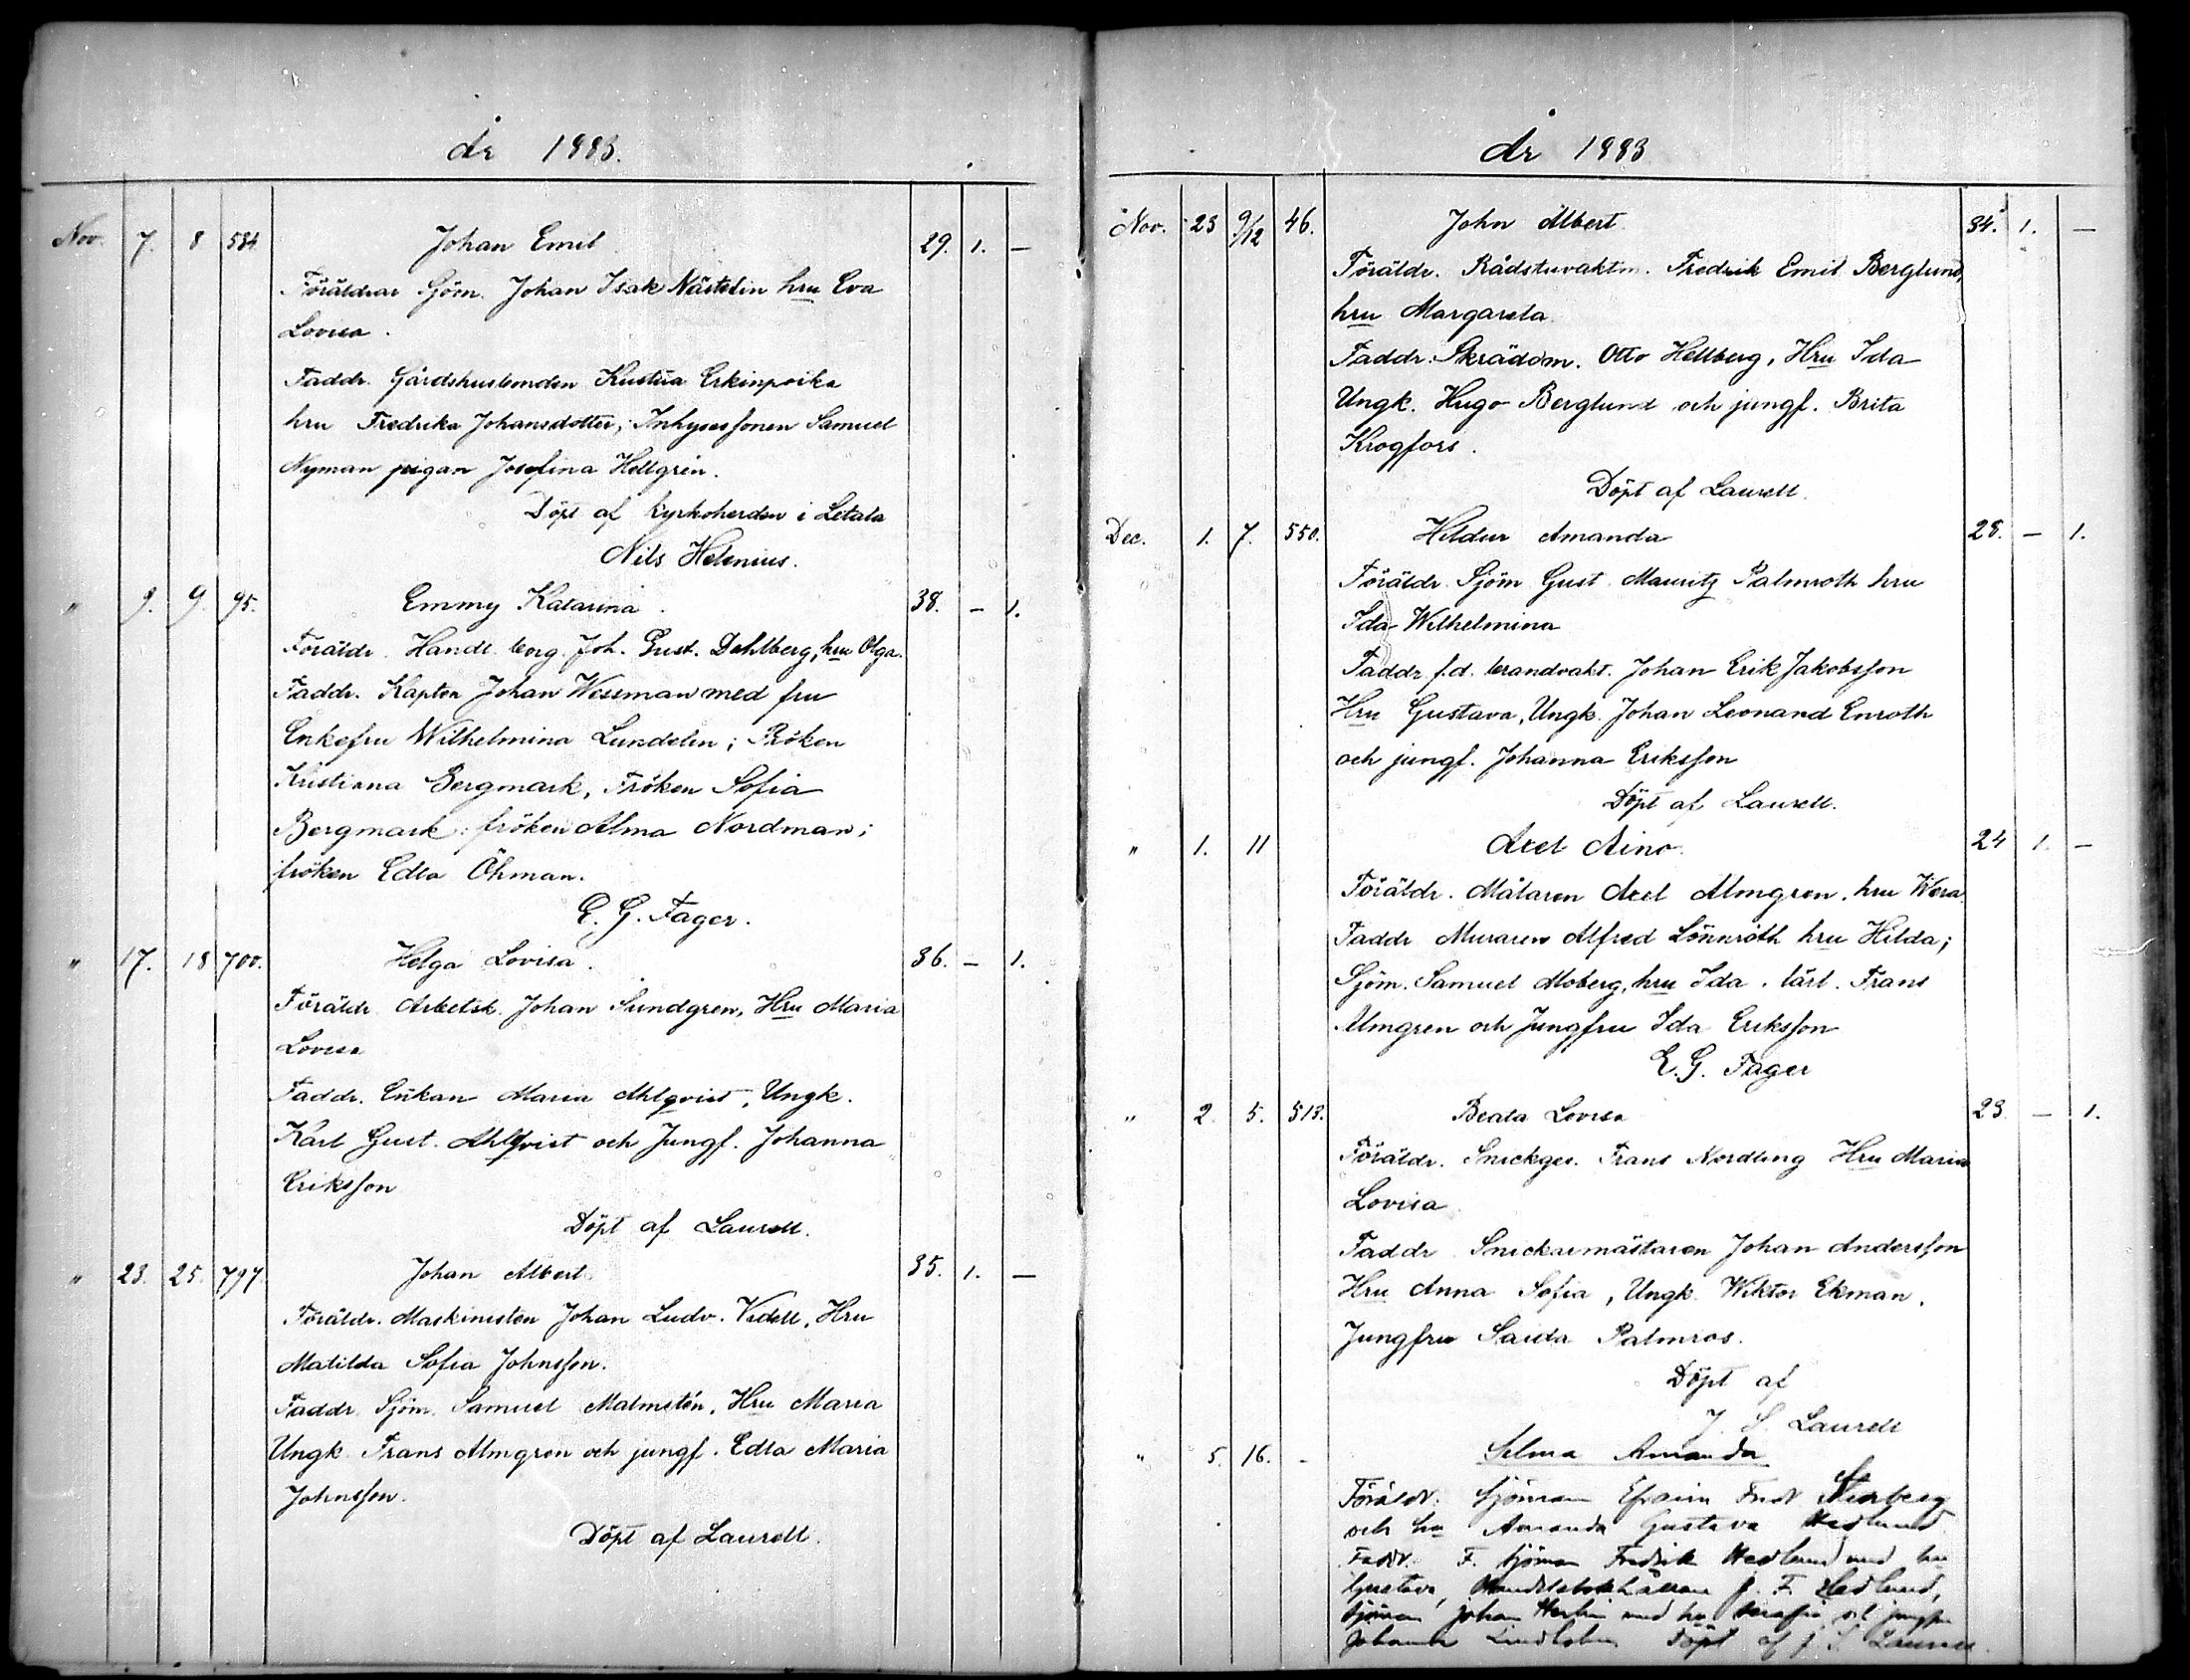 år 1883.
Nov. 7. 8 584 Johan Emil 29. 1. —
Föräldrar Sjöm. Johan Isak Nästelin hru Eva
Lovisa.
Faddr. Gårdshusbonden Kustaa Erkinpoika
hru Fredrika Johansdotter; Inhysessonen Samuel
Nyman pigan Josefina Hellgrén.
Döpt af kyrkoherden i Letala
Nils Helenius.
" 9. 9. 95. Emmy Katarina. 38. — 1.
Föräldr. Handl. borg. Joh. Gust. Dahlberg, hru Olga.
Faddr. Kapten Johan Wessman med fru
Enkefru Wilhelmina Lundelin; Fröken
Kristiana Bergmark, Fröken Sofia
Bergmark; fröken Alma Nordman;
fröken Edla Öhman.
E. G. Fager.
" 17. 18 700. Helga Lovisa. 36. — 1.
Föräldr. Arbetsk. Johan Sundgren, Hru Maria
Lovisa
Faddr. Enkan Maria Ahlqvist, Ungk.
Karl Gust. Ahlqvist och Jungf. Johanna
Eriksson
Döpt af Laurell.
" 23. 25. 797 Johan Albert 35. 1. —
Föräldr. Maskinisten Johan Ludv. Videll, Hru
Matilda Sofia Johnsson.
Faddr. Sjöm. Samuel Malmstén, Hru Maria
Ungk. Frans Almgren och jungf. Edla Maria
Johnsson.
Döpt af Laurell.
år 1883
Nov. 23 9/12 46. John Albert 34. 1. —
Föräldr. Rådstuvaktm. Fredrik Emil Berglund,
hru Margareta.
Faddr. Skräddm. Otto Hellberg, Hru Ida
Ungk. Hugo Berglund och jungf. Brita
Krogfors.
Döpt af Laurell.
Dec. 1. 7. 550. Hildur Amanda 28. — 1.
Föräldr. Sjöm Gust. Mauritz Palmroth hru
Ida Wilhelmina
Faddr. f.d. brandvakt. Johan Erik Jakobsson
Hru Gustava, Ungk. Johan Leonard Enroth
och jungf. Johanna Eriksson
Döpt af Laurell.
" 1. 11 Axel Aino. 24 1. —
Föräldr. Målaren Axel Almgren. hru Wera.
Faddr Muraren Alfred Lönnroth hru Hilda;
Sjöm. Samuel Moberg, hru Ida. lärl. Frans
Almgren och Jungfru Ida Eriksson
E. G. Fager
" 2. 5. 513. Beata Lovisa 23. — 1.
Föräldr. Snickges. Frans Nordling Hru Maria
Lovisa
Faddr Snickarmästaren Johan Andersson
Hru Anna Sofia, Ungk. Wiktor Ekman.
Jungfru Saida Palmros.
Döpt af
J. S. Laurell
" 5. 16. - Selma Amanda
Föräldr. Sjöman Efraim Fredr
och hu Amanda Gustava Hedlund
Faddr. F. Sjöman Fredrik Hedlund med hu
Gustava, Handelsbokhållaren J. F. Hedlund,
Sjöman Johan med hu Serafia och jungfru
Johanna Döpt af J. S. Laurell.